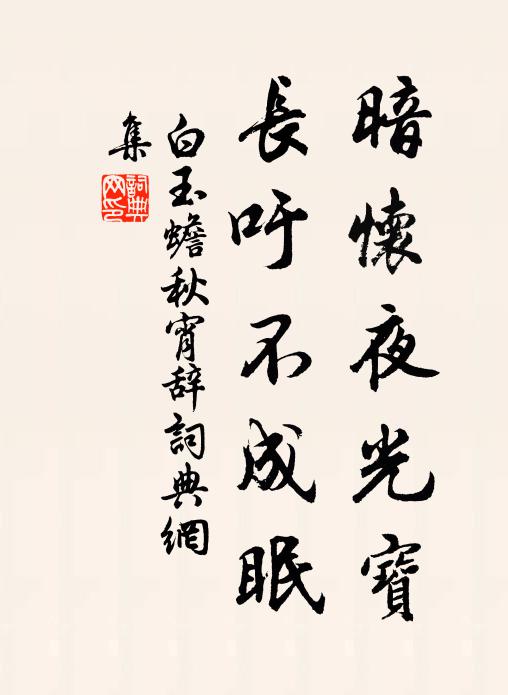 暗懷夜光寶
長吁不成眠
白玉蟾秋宵辭詞典網
集
詞典
网印